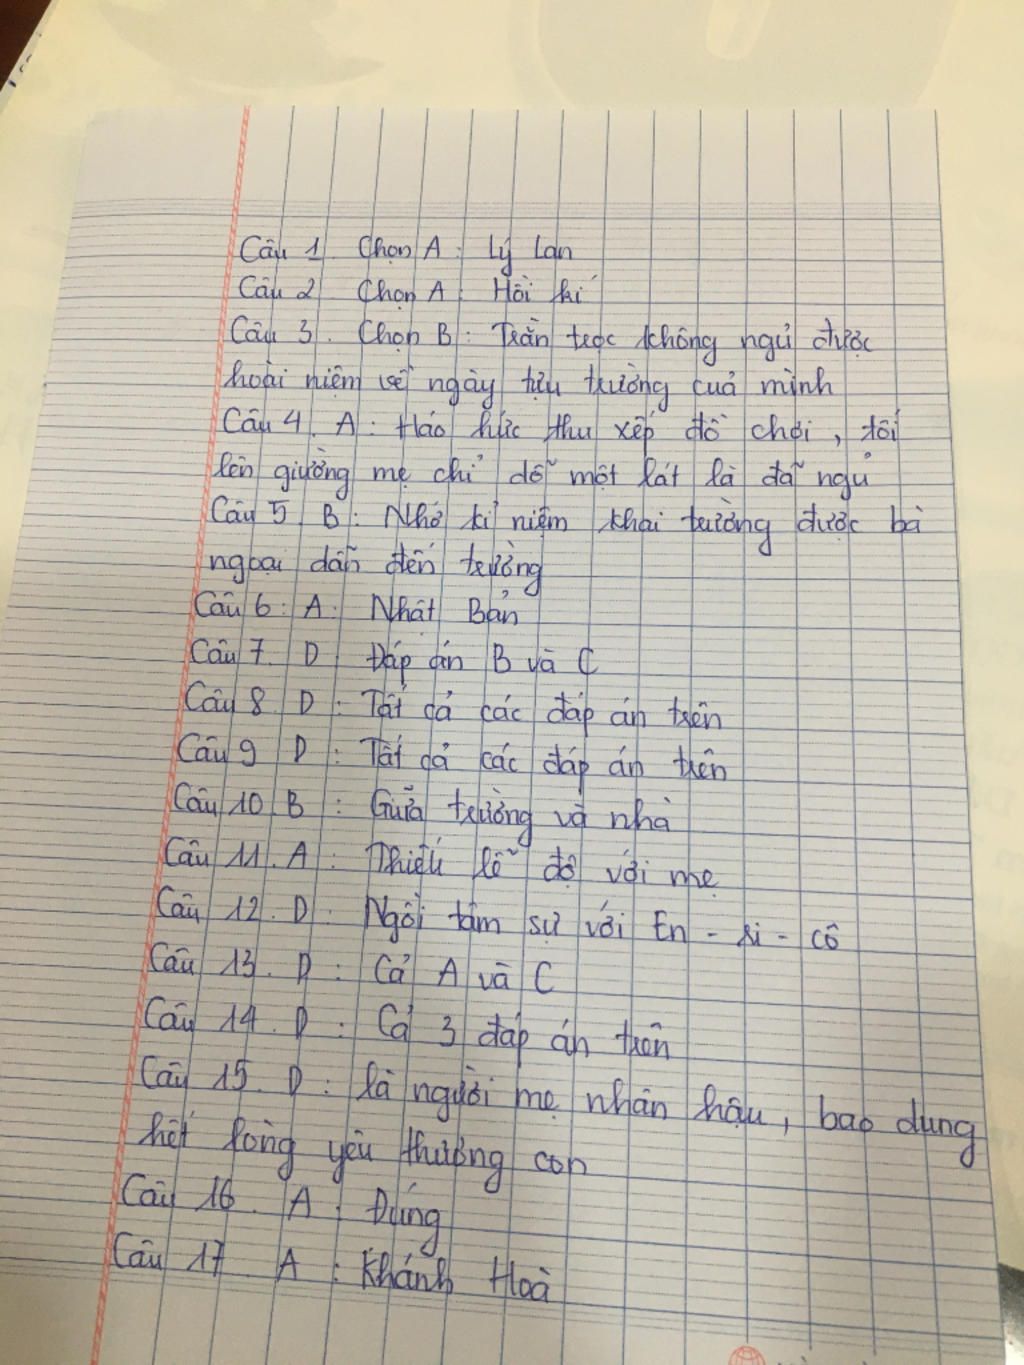 Câu 1. Chọn A: Lý Lan
Câu 2. Chọn A: Hồi kí
Câu 3. Chọn B: Trằn trọc không ngủ được
hoài niệm về ngày tựu trường của mình
Câu 4. A: Háo hức thu xếp đồ chơi, tối
lên giường mẹ chỉ dỗ một lát là đã ngủ
Câu 5. B: Nhớ kỉ niệm khai trường được bà
ngoại dẫn đến trường
Câu 6: A: Nhật Bản
Câu 7. D: Đáp án B và C
Câu 8. D: Tất cả các đáp án trên
Câu 9 D: Tất cả các đáp án trên
Câu 10 B: Giữa trường và nhà
Câu 11. A: Thiếu lễ độ với mẹ
Câu 12. D: Ngồi tâm sự với En-ri-cô
Câu 13. D: Cả A và C
Câu 14. D: Cả 3 đáp án trên
Câu 15. D: là người mẹ nhân hậu, bao dung
hết lòng yêu thương con
Câu 16. A: Đúng
Câu 17 A: Khánh Hoà